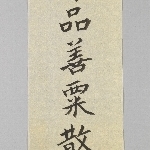 品善粟散